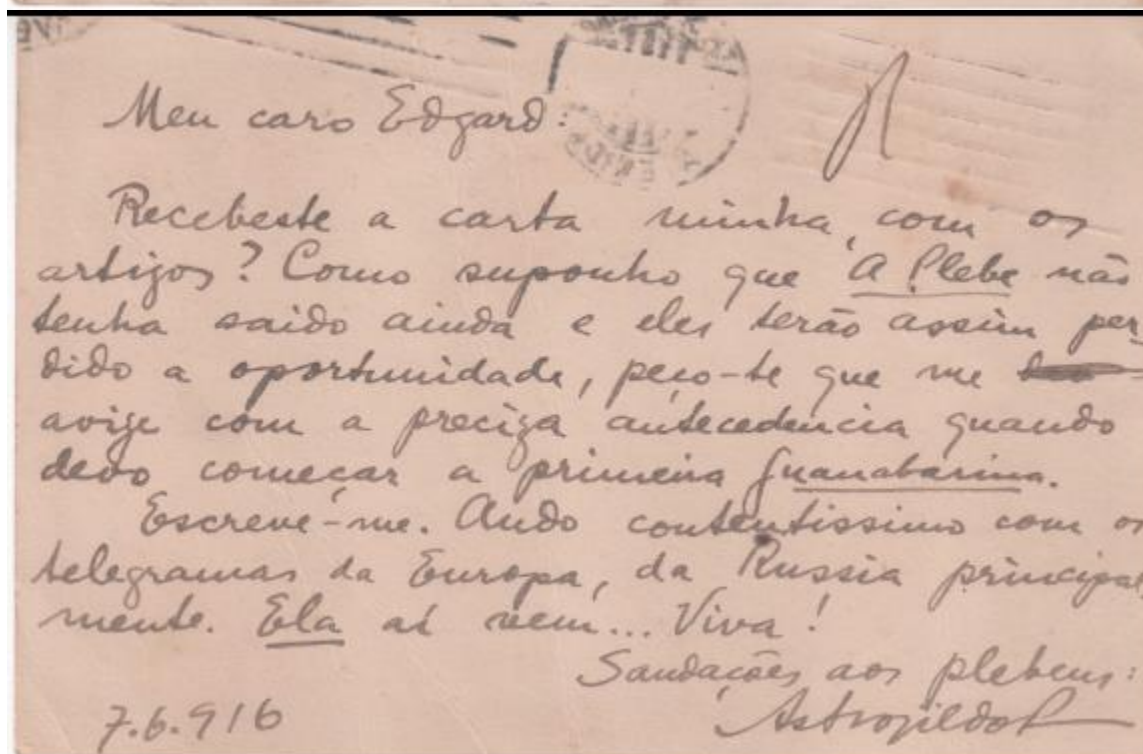 Meu caro Edgard:
Recebeste a carta minha, com os
artigos? Como suponho que A Plebe não
tenha saido ainda e eles terão assim per-
dido a oportunidade, peço-te que me
avize com a preciza antecedencia quando
devo começar a primeira Guanabarina.
Escreve-me. Ando contentissimo com os
telegramas da Europa, da Russia principal
mente. Ela aí vem... Viva!
Saudações aos plebeus:
Astrogildo
7.6.916